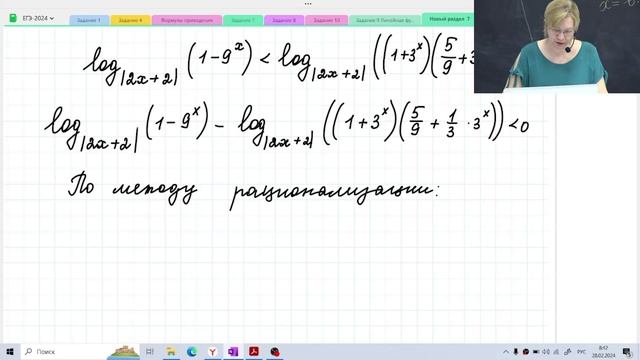 ЕГЭ-2024
Задание 1
Задание 4
Формулы приведения
Задание 7
Задание 8
Задание 10
Задание 9 Линейные фу...
Новый раздел 7
log|2x+2| (1-9^x) < log|2x+2| ((1+3^x)(5/9+3
log|2x+2| (1-9^x) - log|2x+2| ((1+3^x)(5/9 + 1/3 · 3^x)) <0
По методу рационализации:
Поиск
РУС
8:42
28.02.2024